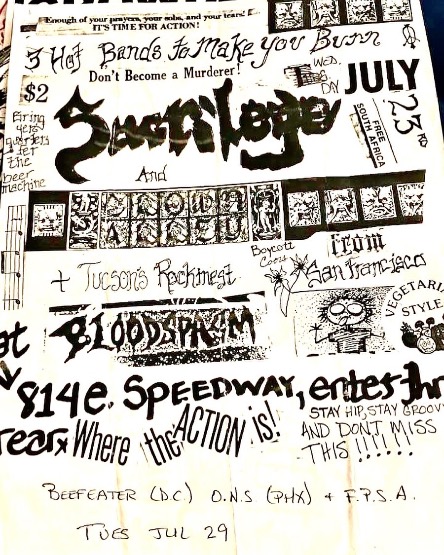 Enough of your prayers, your sobs, and your tears!
IT'S TIME FOR ACTION!
3 Hot Bands to Make you Burn
Don't Become a Murderer!
$2
WED.
DAY
JULY
23RD
FREE
SOUTH AFRICA
Bring
yer
quarters
fer
the
beer
machine
Sacrilege
And
Boycott
Coors
from
San Francisco
+ Tucson's Rockinest
BLOODSPASM
VEGETARIAN
STYLE
at
814 e. SPEEDWAY, enter thru
rear Where the ACTION is!
STAY HIP, STAY GROOVY
AND DON'T MISS
THIS !!!!......
BEEFEATER (D.C.) O.N.S (PHX) + F.P.S.A.
TUES JUL 29